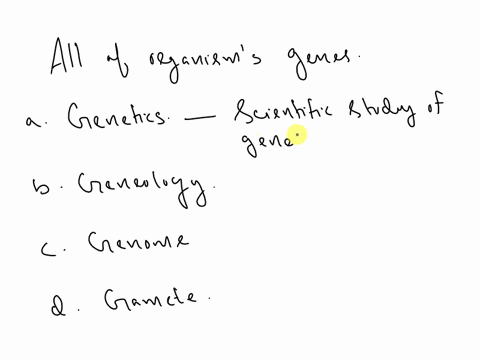 All of organism's genes.
a. Genetics. — Scientific study of
gene
b. Geneology.
c. Genome
d. Gamete.